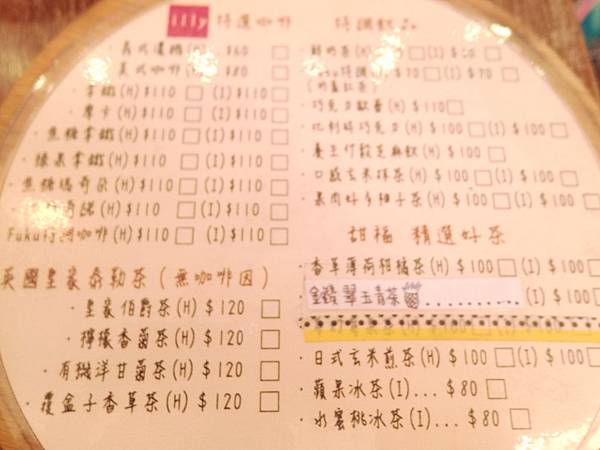 illy 特選咖啡
義式濃縮(H).. $60
美式咖啡(H).. $80
拿鐵(H) $110 (I) $110
摩卡(H) $110 (I) $110
焦糖拿鐵(H) $110 (I) $110
榛果拿鐵(H) $110 (I) $110
焦糖瑪奇朵(H) $110 (I) $110
(H) $110 (I) $110
Fuku特調咖啡(H) $110 (I) $110
英國皇家泰勒茶(無咖啡因)
皇家伯爵茶(H) $120
檸檬香茴茶(H) $120
有機洋甘菊茶(H) $120
覆盆子香草茶(H) $120
特調飲品
鮮奶茶(H)
$70 (I) $70
巧克力歐蕾(H) $110
比利時巧克力(H) $100 (I) $100
養生竹穀芝麻飲(H) $100
口感玄米抹茶(H) $100 (I) $100
果肉好多柚子茶(H) $100 (I) $100
甜福 精選好茶
香草薄荷柑橘茶(H) $100 (I) $100
金鑽翠玉青茶.......... (I) $100
日式玄米煎茶(H) $100 (I) $100
蘋果冰茶(I)... $80
水蜜桃冰茶(I)... $80